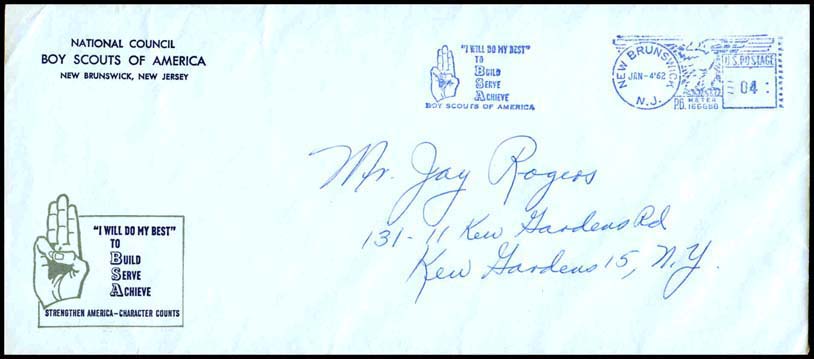 NATIONAL COUNCIL
BOY SCOUTS OF AMERICA
NEW BRUNSWICK, NEW JERSEY
"I WILL DO MY BEST"
TO
BUILD
SERVE
ACHIEVE
BOY SCOUTS OF AMERICA
NEW BRUNSWICK
JAN-4'62
N.J.
U.S. POSTAGE
04
P.B. METER
166686
Mr. Jay Rogers
131-11 Kew Gardens Rd
Kew Gardens 15, N.Y.
"I WILL DO MY BEST"
TO
BUILD
SERVE
ACHIEVE
STRENGTHEN AMERICA—CHARACTER COUNTS